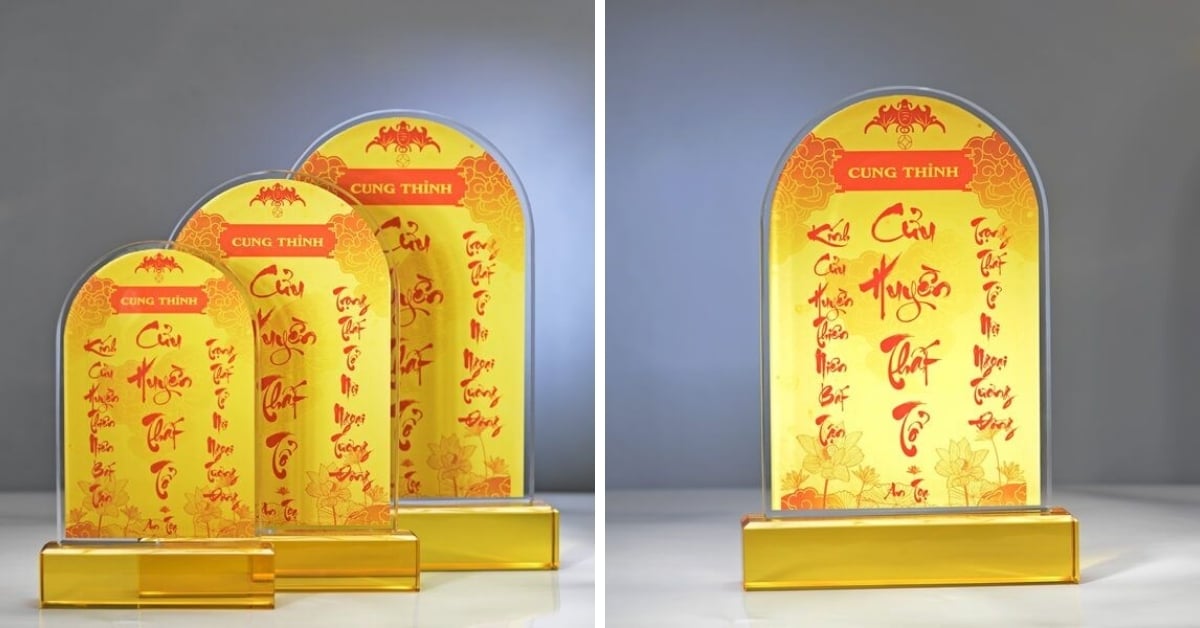 CUNG THỈNH
Kính Cửu Huyền Thiên Niên Bất Tận
Cửu Huyền Thất Tổ
Trọng Thất Tổ Nội Ngoại Tương Đồng
An Tọa
CUNG THỈNH
Cửu Huyền Thất Tổ
Trọng Thất Tổ Nội Ngoại Tương Đồng
An Tọa
CUNG THỈNH
Cửu Huyền
Trọng Thất Tổ Nội Ngoại Tương Đồng
CUNG THỈNH
Kính Cửu Huyền Thiên Niên Bất Tận
Cửu Huyền Thất Tổ
Trọng Thất Tổ Nội Ngoại Tương Đồng
An Tọa